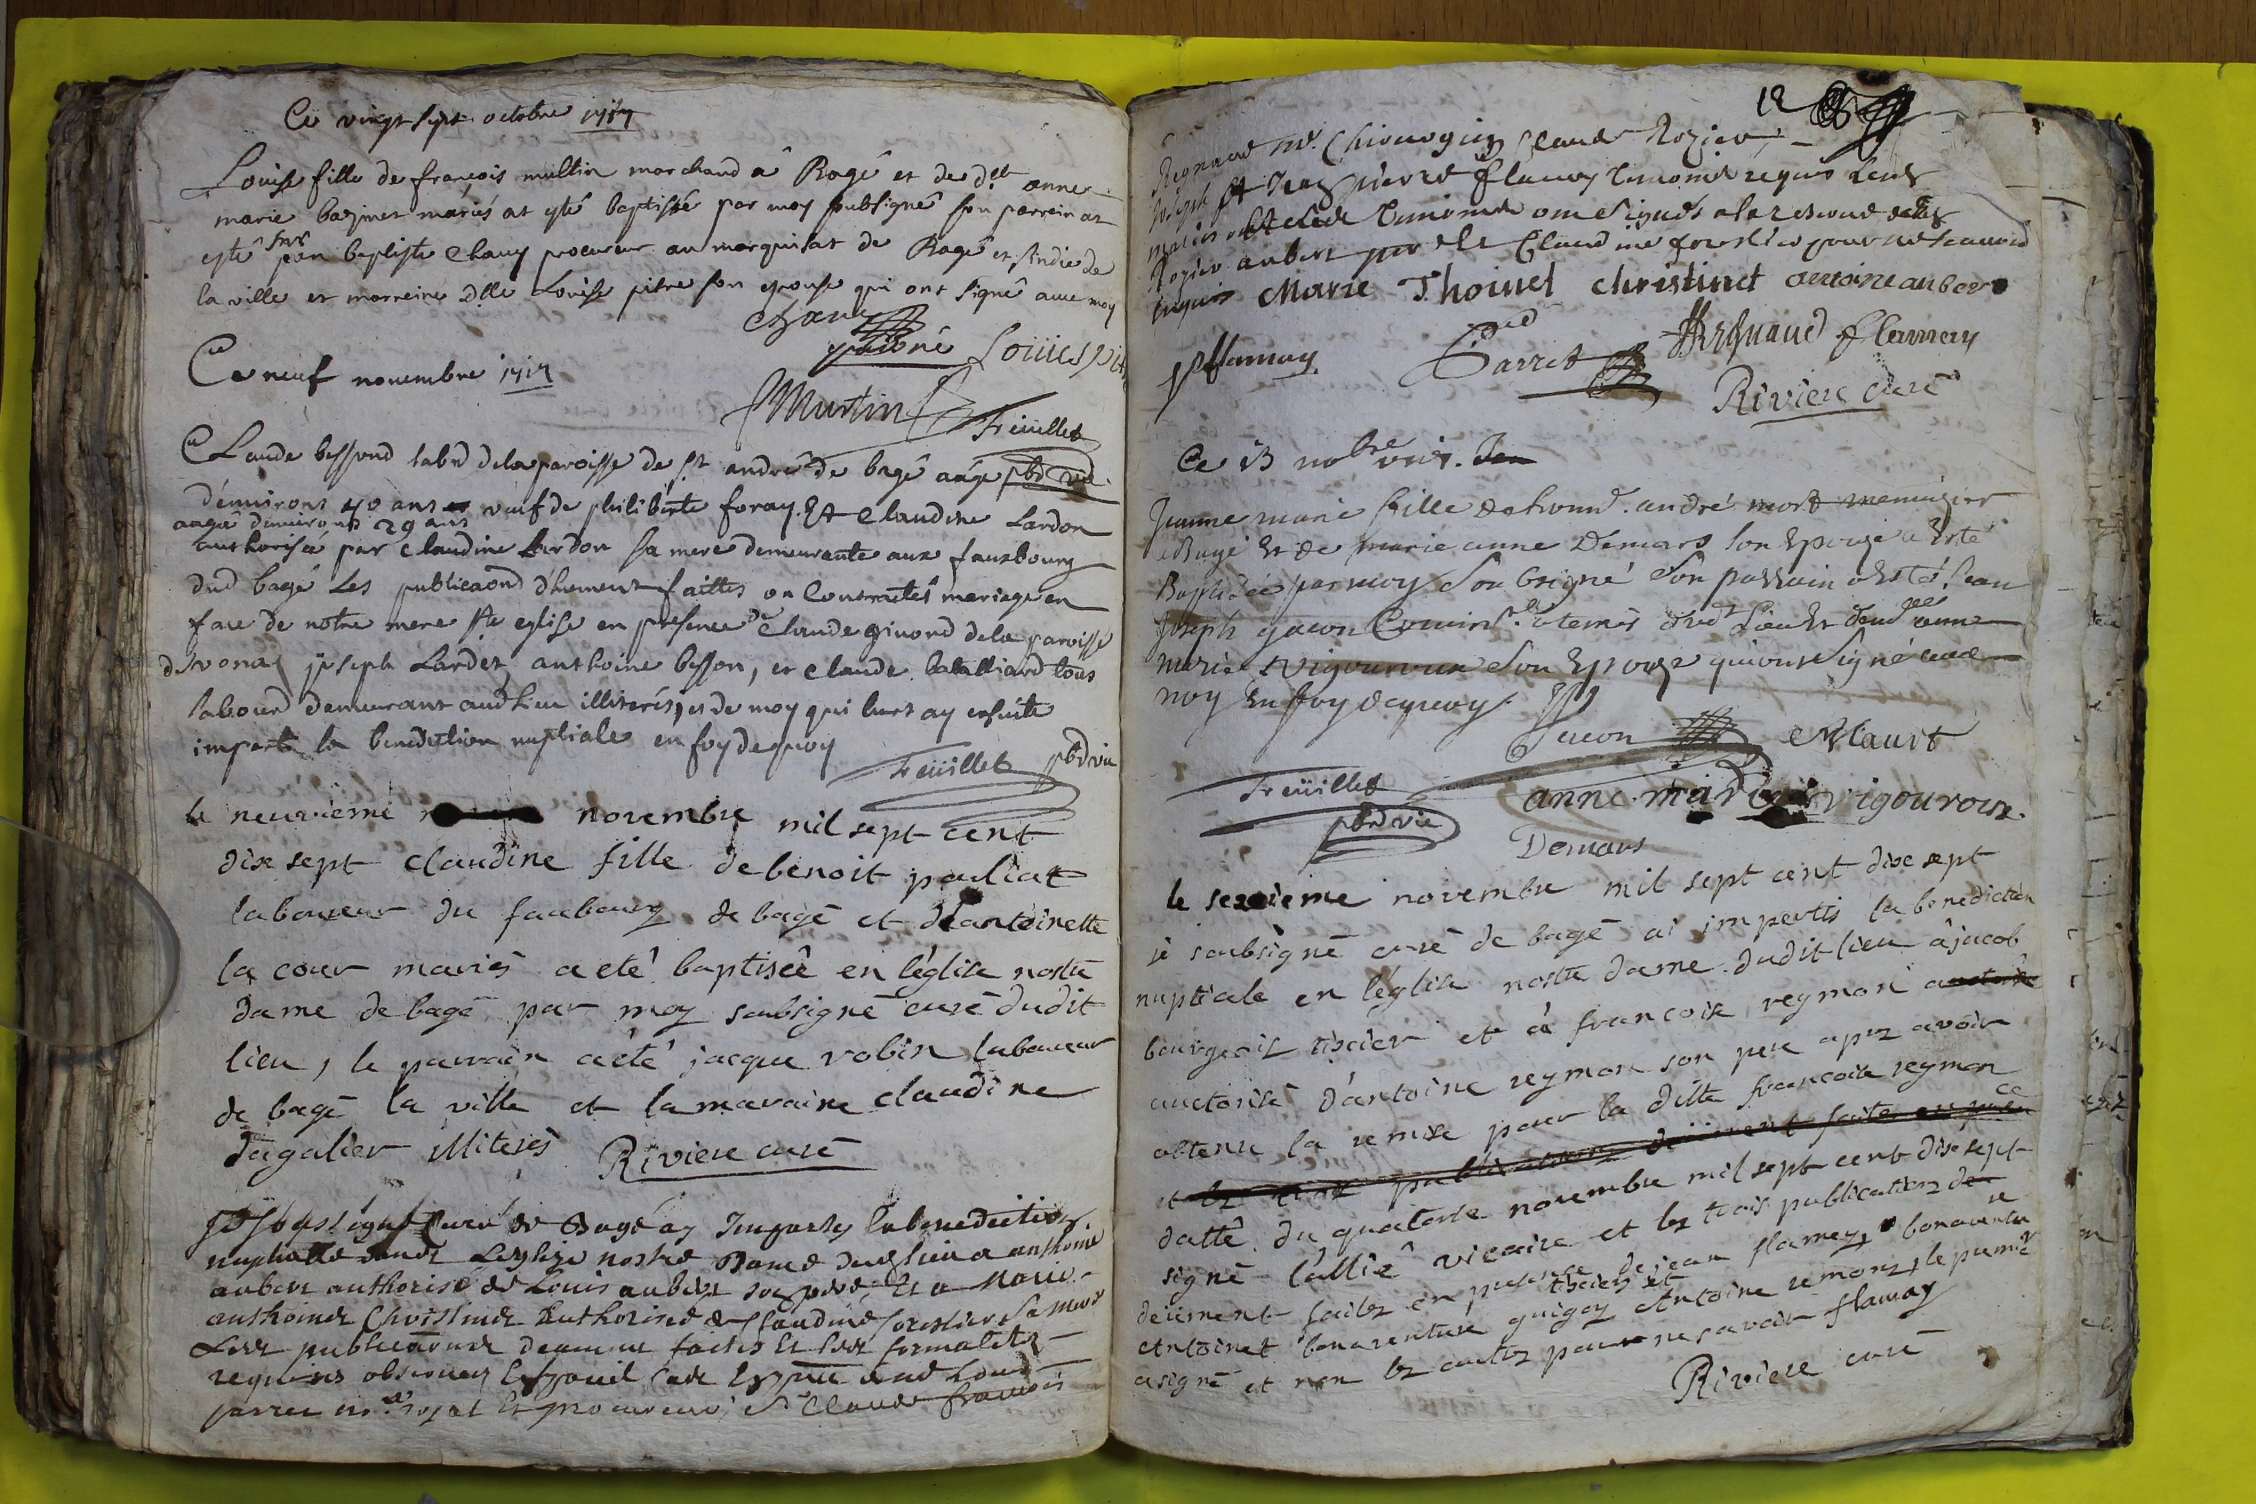 Ce vingt sept octobre 1717
Louise fille de françois multin marchand â Bagê et de dlle anne
marie bazinet mariés at esté baptisée par moy soubsigné son parrein at
esté sr jean baptiste Chauy procureur au marquisat de Bagê et sindic de
la ville et marreine Dlle Louise pitre son epouse qui ont signé avec moy
Chauy
Louise pitre
Ce neuf novembre 1717
Martin
Feüillet
pbr vic.
Claude bessond labr de la paroisse de st andré de bagé aagé
d'environt 40 ans veuf de philiberte foray. Et Claudine Lardon
aagée denviront 29 ans
authorisée par Claudine Lardon sa mere demeurante aux fauxbourg
dud bagé Les publicaōnd dhument faittes on Contractés mariage en
face de notre mere ste eglise en presence de Claude givord de la paroisse
joseph Lardet, anthoine besson, et Claude tous
labourd demeurant aud lieu illiterés, et de moy qui leurs ay ensuitte
imparti la benediction nuptiale en foy de quoy
Feüillet pbr vic
le neuvième novembre mil sept cent
dix sept claudine fille de benoit pauliat
laboureur du faubourg de bagé et d'antoinette
la cour mariés a eté baptisée en l'église nostre
dame de bagé par moy soubsigné curé dudit
lieu, le parrain a été jacque robin laboureur
de bagé la ville et la maraine claudine
dagalier illiterés Riviere curé
Je sousigné Curé de Bagé ay Imparty la benediction
nuptialle dans Leglize nostre Dame dud lieu a anthoine
aubert authorisé de Louis aubert son pere, Et a Marie
anthoinet Christinet Authorisée de Claudine forestier sa mere
Les publicaōns deument faites Et les formalités
requises observees
parret royal Et procureur, sr Claude françois
12
Regnaud me. Chirurgien Claude Rozier
joseph Et Jean pierre flamey temoins requis Lesd
mariés et lesd temoins ont signés a la reserve desd
Rozier aubert pere et Claudine forestier pour ne scavoir
enquis Marie Thoinet christinet antoine aubert
Pflamay Parret Regnaud flamery
Riviere curé
Ce 13 nobre 1717. Jea
Jeanne marie fille de honn. andré mort menuizier
a Bagé Et de marie anne Demars son Epouze a Esté
Baptisée par moy Soubsigné son parrain a Esté Jean
Joseph yacon Commis a terrier dud Lieu Et dlle anne
marie Vigouroux son Epouze qui ont signé avec
moy En foy de quoy.
Yacon Maurt
Feüillet anne marie vigouroux.
pbr vic
Demars
le sezieme novembre mil sept cent dix sept
je soubsigné curé de bagé ai imperti la benediction
nuptiale en l'église nostre dame dudit lieu â jacob
bourgeois tixier et à françoise reymon auctorise
auctorisé d'antoine reymon son pere apr avoir
obtenu la remise pour la ditte françoise reymon
et les trois publications deüment faites en presence
dattê du quatorse novembre mil sept cent dix sept
signê l'alliê vicaire et les trois publications de
deüment faites en presence de jean flamey, bonaventure
tixiers et
Antoinet bonaventure guigoy Antoine remont, le premier
a signé et non les autres pour ne savoir flamay
Riviere curé